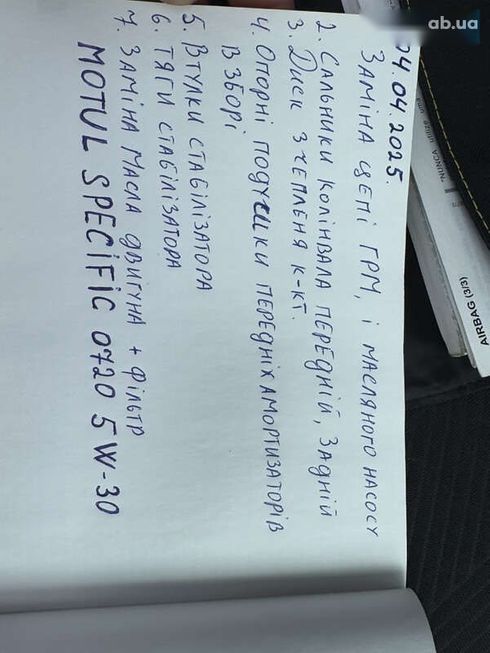 04.04.2025.
ЗАМІНА ЦЕПІ ГРМ, І МАСЛЯНОГО НАСОСУ
2. САЛЬНИКИ КОЛІНВАЛА ПЕРЕДНІЙ, ЗАДНІЙ
3. ДИСК ЗЧЕПЛЕНЯ К-КТ.
4. ОПОРНІ ПОДУШКИ ПЕРЕДНІХ АМОРТИЗАТОРІВ
В ЗБОРІ
5. ВТУЛКИ СТАБІЛІЗАТОРА
6. ТЯГИ СТАБІЛІЗАТОРА
7. ЗАМІНА МАСЛА ДВИГУНА + ФІЛЬТР
MOTUL SPECIFIC 0720 5W-30
AIRBAG (3/3)
NUNCA
ab.ua